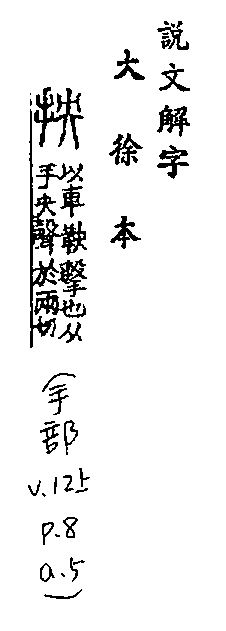 說文解字
大徐本
抰
以車鞅擊也从
手央聲於兩切
(手部
v.12上
p.8
a.5)